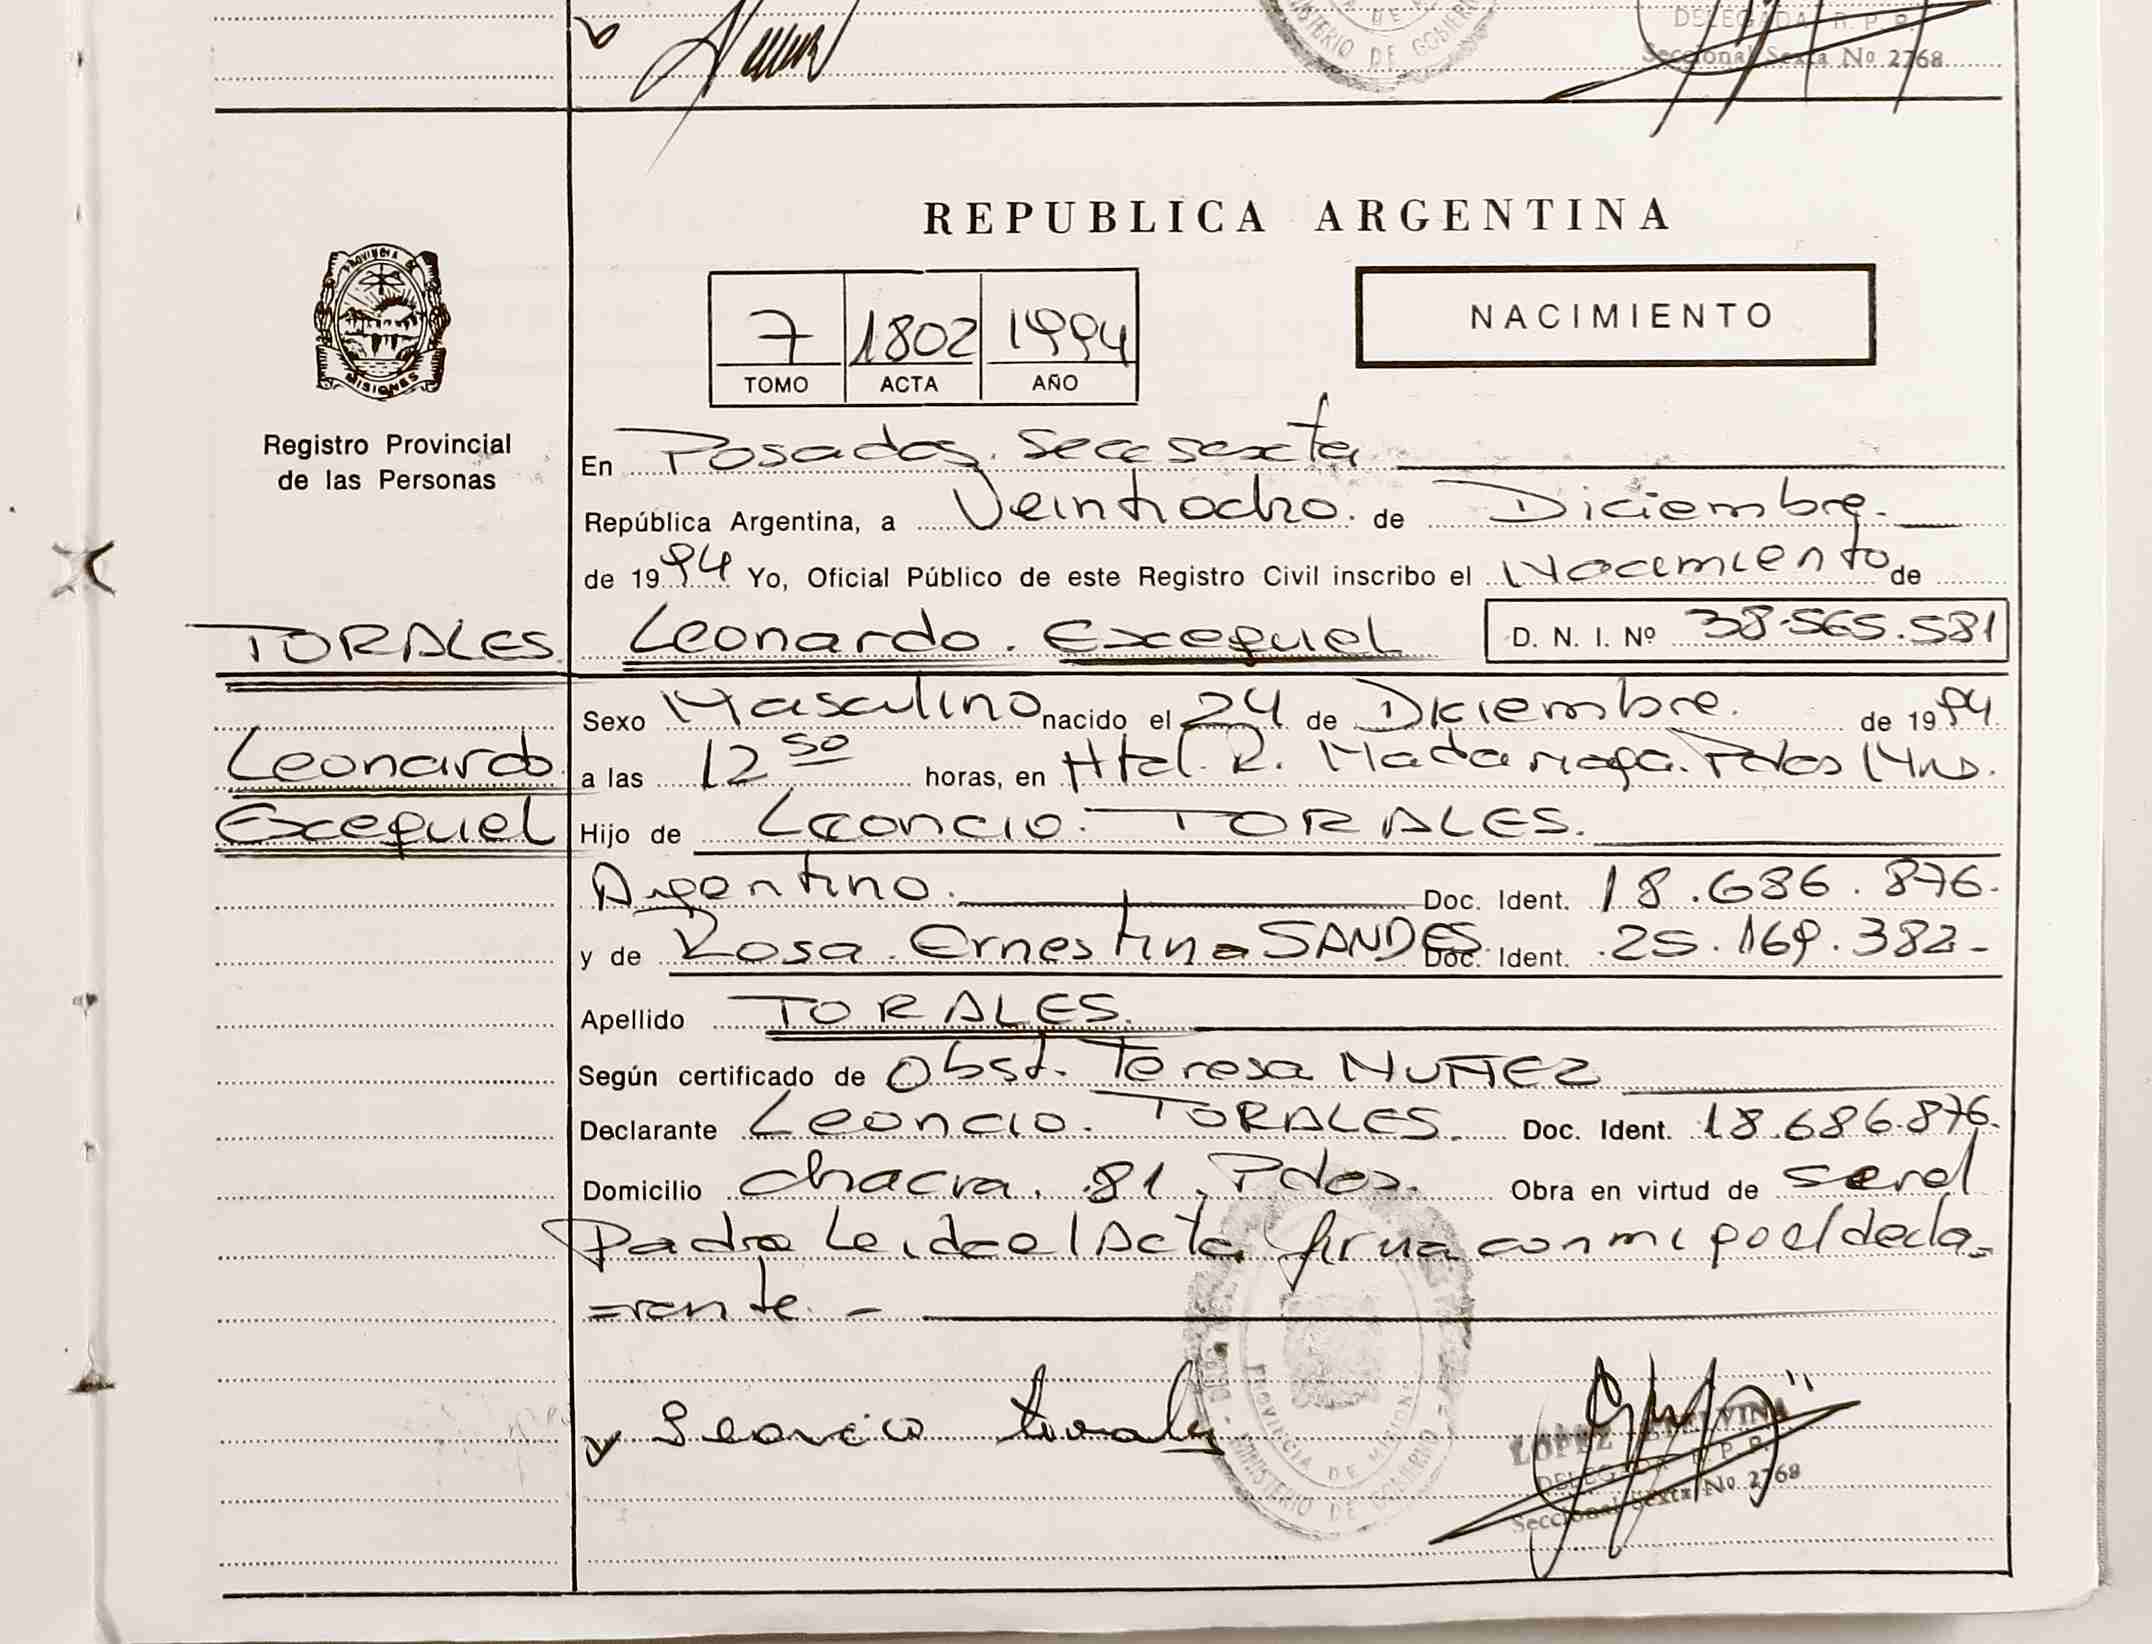 DELEGADA R. P. P.
MINISTERIO DE GOBIERNO
Seccional Sexta Nº 2768
REPUBLICA ARGENTINA
PROVINCIA DE
MISIONES
7 1802 1994
TOMO ACTA AÑO
NACIMIENTO
Registro Provincial
de las Personas
En Posadas. Secc sexta
República Argentina, a Veintiocho. de Diciembre.
de 1994 Yo, Oficial Público de este Registro Civil inscribo el Nacimiento de
TORALES. Leonardo. Exequiel D. N. I. Nº 38.565.581
Sexo Masculino nacido el 24 de Diciembre. de 1994
Leonardo a las 12 50 horas, en Htal. R. Madariaga. Pdas Mns.
Exequiel Hijo de Leoncio. TORALES.
Argentino. Doc. Ident. 18.686.876.
y de Rosa. Ernestina SANDES Doc. Ident. 25.169.382-
Apellido TORALES.
Según certificado de Obst. Teresa NUÑEZ
Declarante Leoncio. TORALES. Doc. Ident. 18.686.876.
Domicilio chacra. 81, Pdas. Obra en virtud de ser el
Padre Leida el Acta firma conmigo el decla=
=rante. -
Leoncio Torales
PROVINCIA DE MISIONES
MINISTERIO DE GOBIERNO
LOPEZ ETELVINA
DELEGADA R. P. P.
Seccional Sexta Nº 2768